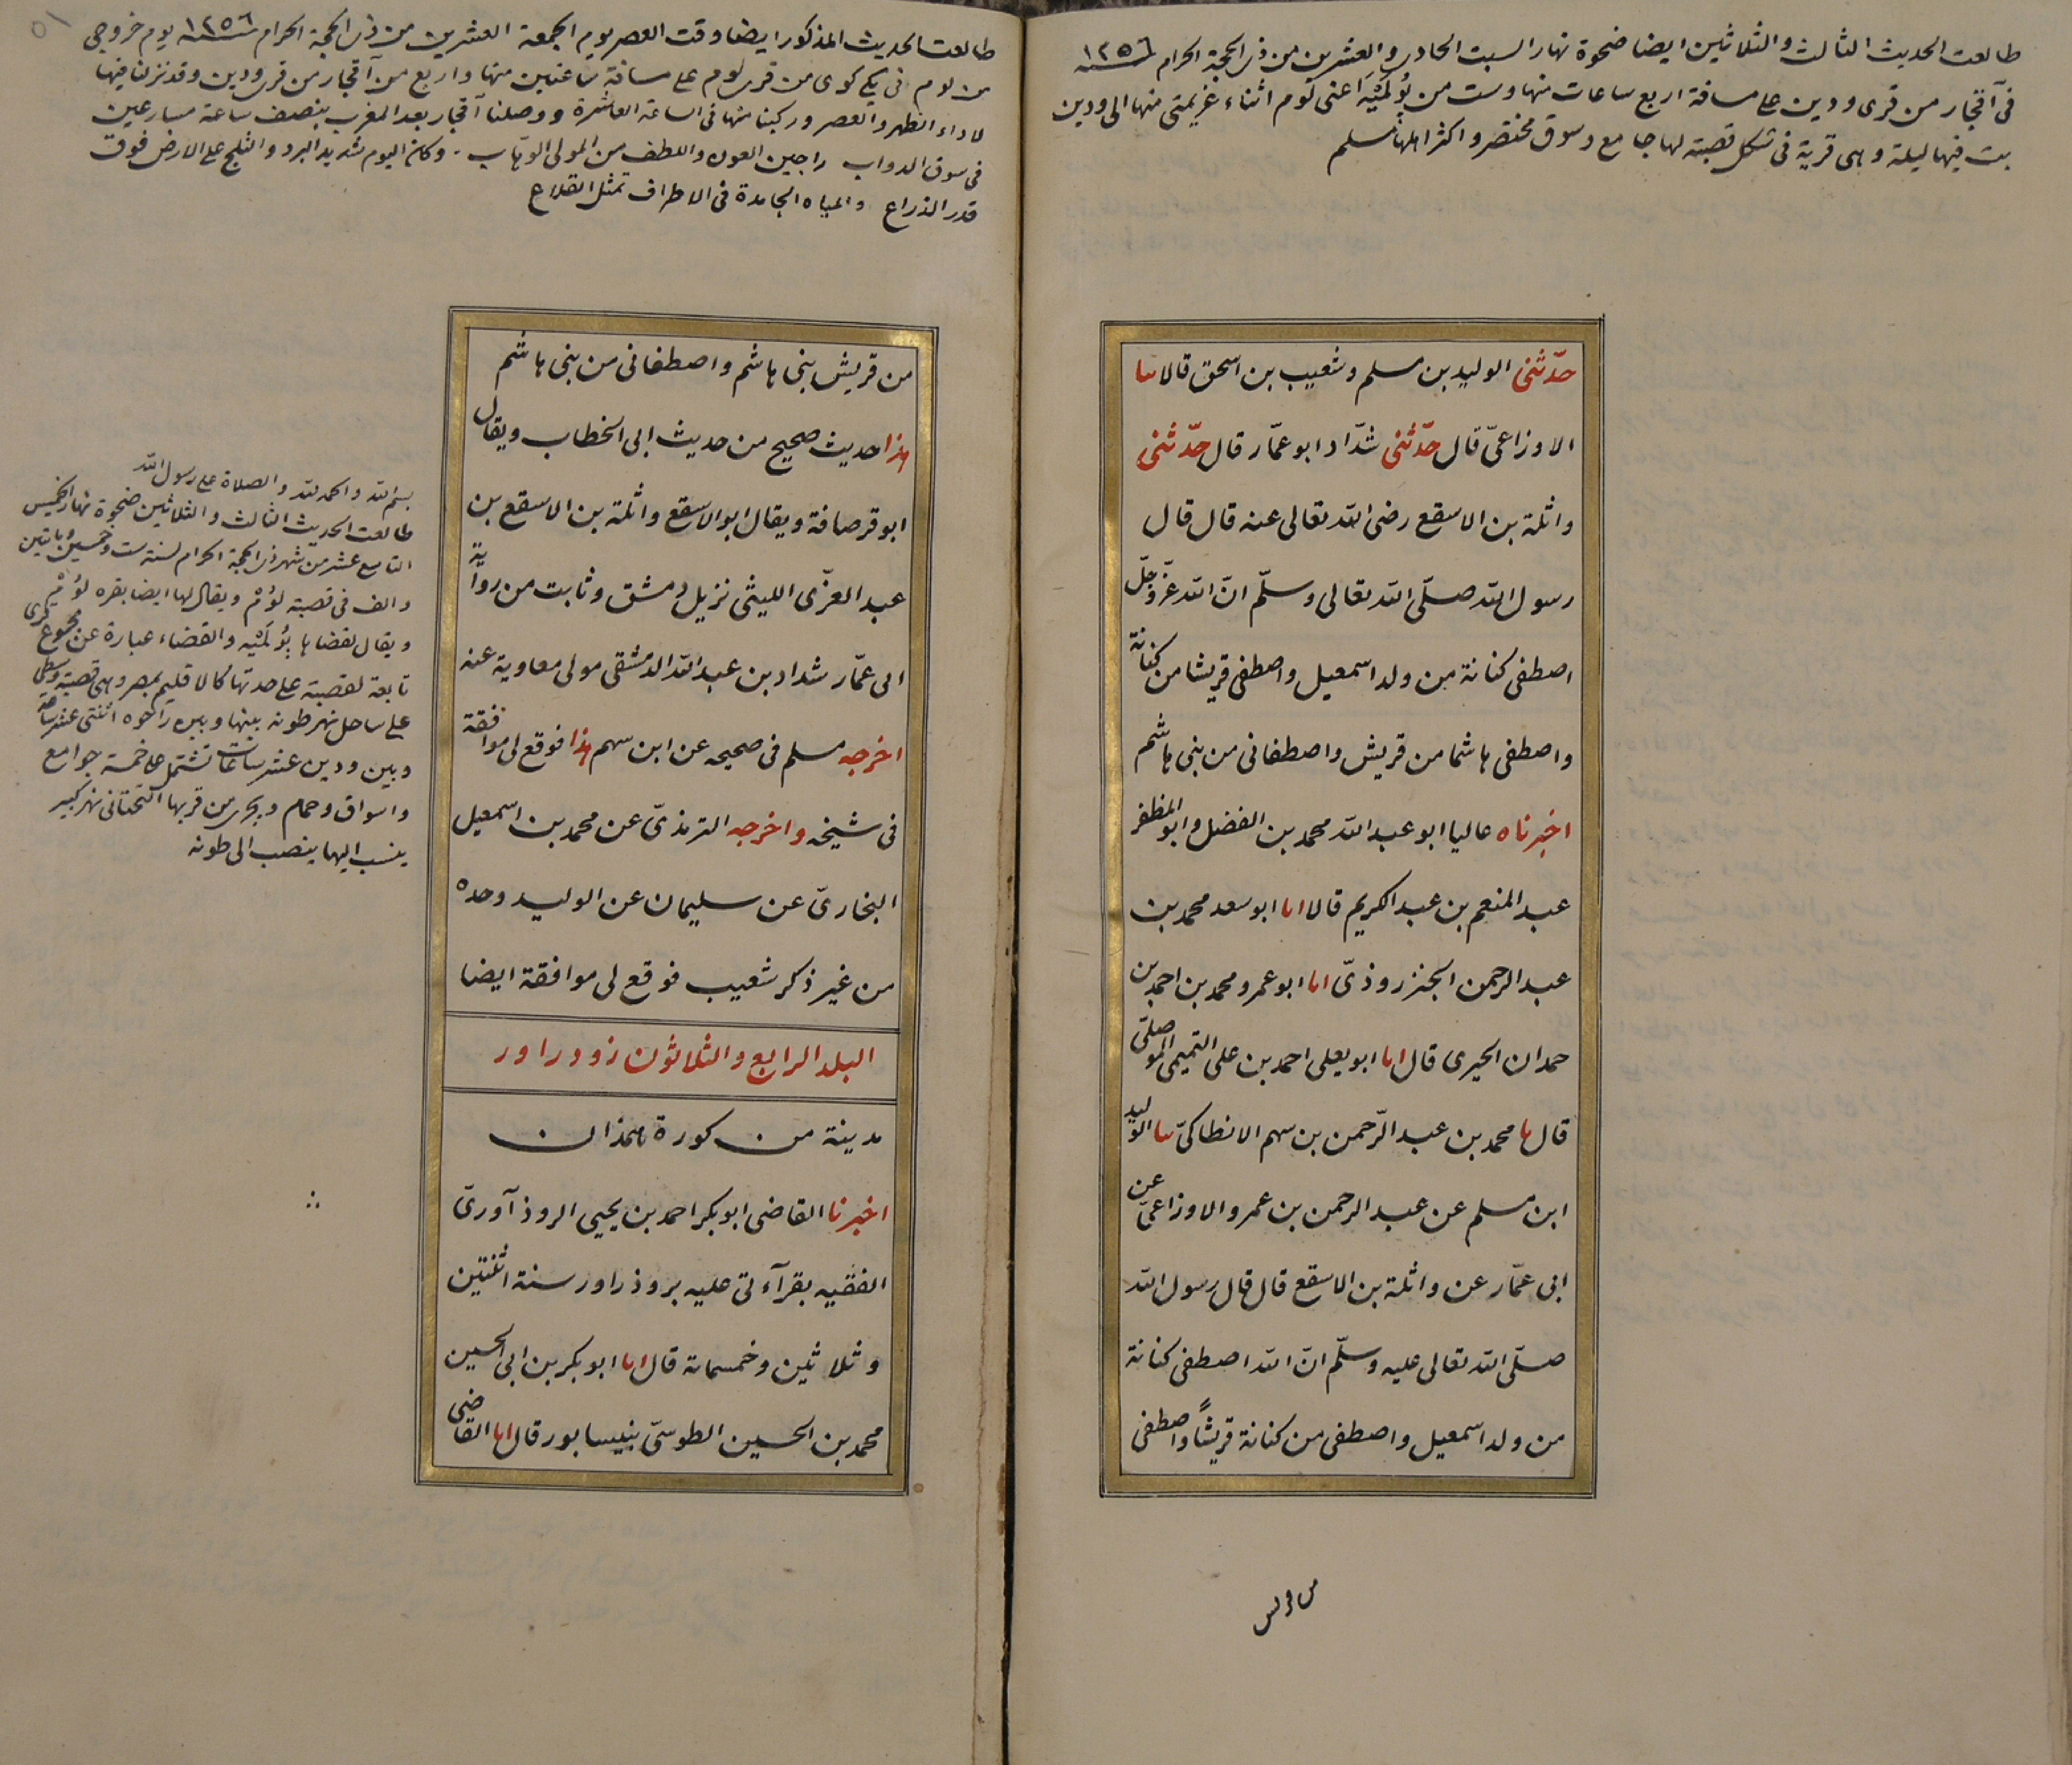 طالعت الحديث الثالث والثلاثين ايضا ضحوة نهار السبت الحادى والعشرين من ذى الحجة الحرام ١٢٥٦ سنه
فى آقچار من قرى ودين على مسافة اربع ساعات منها وست من بُوُلَمْيَه اعنى لوم اثناء عزيمتى منها الى ودين
بت فيها ليلة وهى قرية فى شكل قصبة لها جامع وسوق مختصر واكثر اهلها مسلم
حدّثنى الوليد بن مسلم وشعيب بن اسحق قالا ثنا
الاوزاعىّ قال حدّثنى شدّاد ابو عمّار قال حدّثنى
واثلة بن الاسقع رضى الله تعالى عنه قال قال
رسول الله صلّى الله تعالى وسلّم انّ الله عزّ وجلّ
اصطفى كنانة من ولد اسمعيل واصطفى قريشا من كنانة
واصطفى هاشما من قريش واصطفانى من بنى هاشم
اخبرناه عاليا ابو عبد الله محمد بن الفضل وابو المظفر
عبد المنعم بن عبد الكريم قالا انا ابو سعد محمد بن
عبد الرحمن الجنزروذىّ انا ابو عمرو محمد بن احمد بن
حمدان الحيرى قال انا ابو يعلى احمد بن على التميمى الموصلىّ
قال نا محمد بن عبد الرّحمن بن سهم الانطاكىّ ثنا الوليد
ابن مسلم عن عبد الرحمن بن عمرو الاوزاعىّ عن
ابى عمّار عن واثلة بن الاسقع قال قال رسول الله
صلّى الله تعالى عليه وسلّم انّ الله اصطفى كنانة
من ولد اسمعيل واصطفى من كنانة قريشًا واصطفى
من قريش
طالعت الحديث المذكور ايضا وقت العصر يوم الجمعة العشرين من ذى الحجة الحرام ١٢٥٦ سنه يوم خروجى
من لوم فى يكى كوى من قرى لوم على مسافة ساعتين منها واربع من آقچار من قرى ودين وقد نزلنا فيها
لاداء الظهر والعصر وركبنا منها فى الساعة العاشرة ووصلنا آقچار بعد المغرب بنصف ساعة مسارعين
فى سوق الدواب راجين العون واللطف من المولى الوهّاب . وكان اليوم شديد البرد والثلج على الارض فوق
قدر الذراع والمياه الجامدة فى الاطراف تمثل القلاع
من قريش بنى هاشم واصطفانى من بنى هاشم
هذا حديث صحيح من حديث ابى الخطاب ويقال
ابو قرصافة ويقال ابو الاسقع واثلة بن الاسقع بن
عبد العزّى الليثى نزيل دمشق وثابت من رواية
ابى عمّار شداد بن عبد الله الدمشقى مولى معاوية عنه
اخرجه مسلم فى صحيحه عن ابن سهم هذا فوقع لى موافقة
فى شيخه واخرجه الترمذىّ عن محمد بن اسمعيل
البخارىّ عن سليمان عن الوليد وحده
من غير ذكر شعيب فوقع لى موافقة ايضا
البلد الرابع والثلاثون زودراور
مدينة من كورة همذان
اخبرنا القاضى ابو بكر احمد بن يحيى الروذ آورىّ
الفقيه بقرآءتى عليه بروذراور سنة اثنتين
وثلاثين وخمسمائة قال انا ابو بكر بن ابى الحسين
محمد بن الحسين الطوسىّ بنيسابور قال انا القاضى
بسم الله والحمد لله والصلاة على رسول الله
طالعت الحديث الثالث والثلاثين ضحوة نهار الخميس
التاسع عشر من شهر ذى الحجة الحرام لسنة ست وخمسين ومايتين
والف فى قصبة لوُمْ ويقال لها ايضا بقره لوُمْ
ويقال لقضاها بُوُلَمْيه والقضاء عبارة عن مجموع قرى
تابعة لقصبة على حدتها كالاقليم بمصر وهى قصبة وسطى
على ساحل نهر طونه بينها وبين راحوه اثنتى عشر ساعة
وبين ودين عشر ساعات تشتمل على خمسة جوامع
واسواق وحمام ويجرى من قربها التحتانى نهر كبير
ينسب اليها ينصب الى طونه